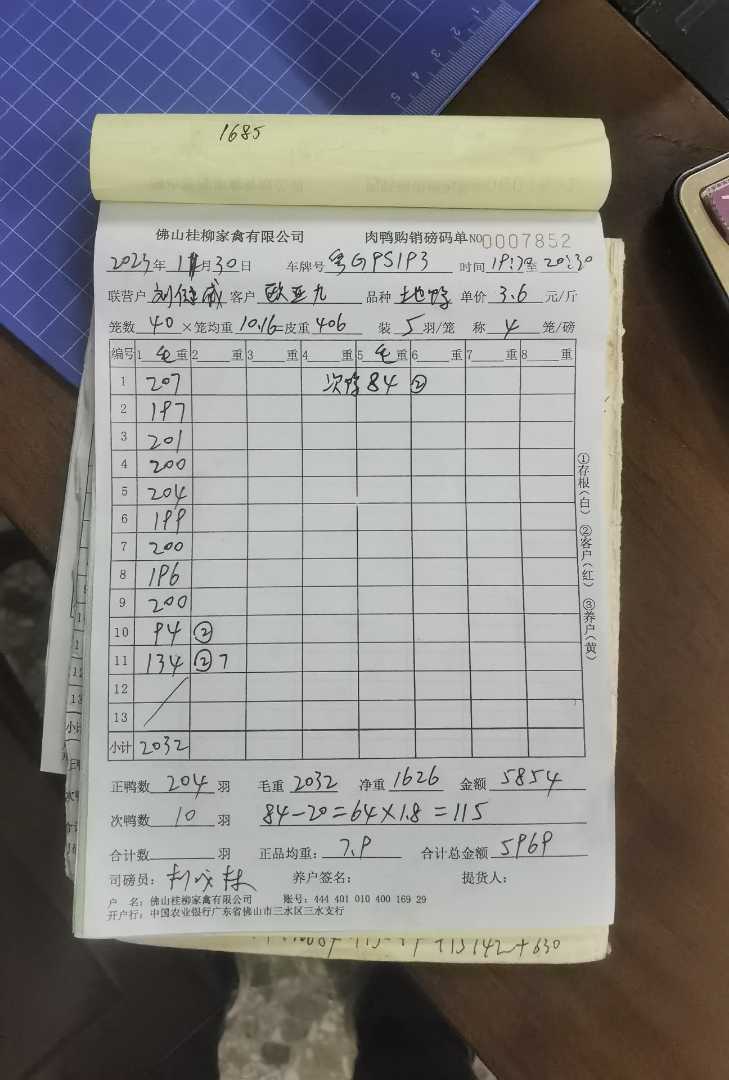 1685
佛山桂柳家禽有限公司 肉鸭购销磅码单 NO 0007852
2025年 11月30日 车牌号 粤GPS1P3 时间 19:30至 20:30
联营户 客户 欧亚九 品种 土地鸭 单价 3.6 元/斤
笼数 40 ×笼均重 10.16=皮重 406 装 5 羽/笼 称 4 笼/磅
编号 1 毛 重 2 重 3 重 4 重 5 毛 重 6 重 7 重 8 重
1 207 次鸭 84 ②
2 197
3 201
4 200
5 204
6 199
7 200
8 196
9 200
10 94 ②
11 134 ② 7
12
13
小计 2032
正鸭数 204 羽 毛重 2032 净重 1626 金额 5854
次鸭数 10 羽 84-20=64×1.8=115
合计数 羽 正品均重: 7.9 合计总金额 5969
司磅员: 养户签名: 提货人:
户 名: 佛山桂柳家禽有限公司 账号: 444 401 010 400 169 29
开户行: 中国农业银行广东省佛山市三水区三水支行
①存根(白) ②客户(红) ③养户(黄)